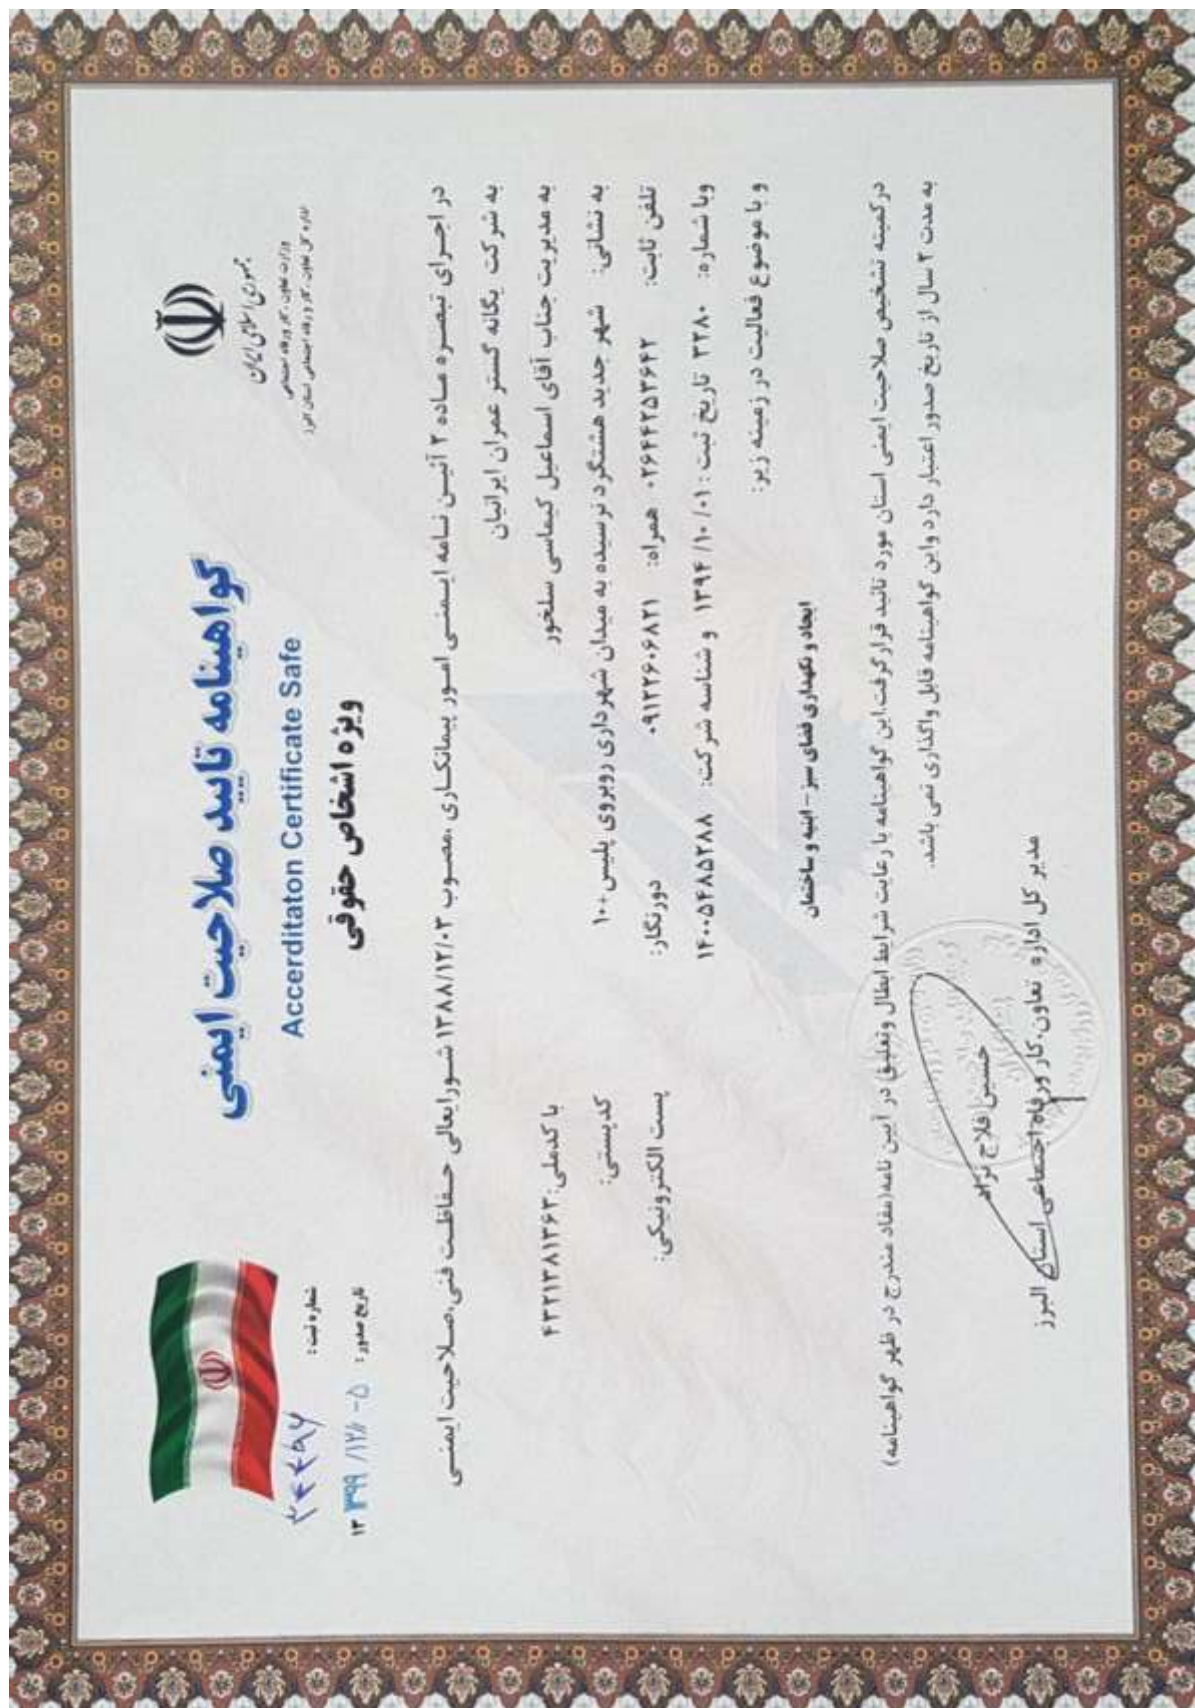 جمهوری اسلامی ایران
وزارت تعاون، کار و رفاه اجتماعی
اداره کل تعاون، کار و رفاه اجتماعی استان البرز
گواهینامه تایید صلاحیت ایمنی
Accerditaton Certificate Safe
ویژه اشخاص حقوقی
شماره ثبت :
تاریخ صدور : ۱۳۹۹/۱۲/۰۵
در اجرای تبصره ماده ۲ آئین نامه ایمنی امور پیمانکاری ،مصوب ۱۳۸۸/۱۲/۰۳ شورایعالی حفاظت فنی،صلاحیت ایمنی
به شرکت یگانه گستر عمران ایرانیان
به مدیریت جناب آقای اسماعیل کیماسی سلخور با کدملی:۴۳۲۱۳۸۱۳۶۳
به نشانی: شهر جدید هشتگرد نرسیده به میدان شهرداری روبروی پلیس+۱۰ کدپستی:
تلفن ثابت: ۰۲۶۴۴۲۵۳۶۴۲ همراه: ۰۹۱۲۲۶۰۶۸۲۱ دورنگار: پست الکترونیکی:
وبا شماره: ۳۲۸۰ تاریخ ثبت : ۱۳۹۴/۱۰/۰۱ و شناسه شرکت: ۱۴۰۰۵۴۸۵۲۸۸
و با موضوع فعالیت در زمینه زیر:
ایجاد و نگهداری فضای سبز – ابنیه و ساختمان
درکمیته تشخیص صلاحیت ایمنی استان مورد تائید قرارگرفت.این گواهینامه با رعایت شرایط ابطال وتعلیق) در آیین نامه(مفاد مندرج در ظهر گواهینامه)
به مدت ۲ سال از تاریخ صدور اعتبار دارد واین گواهینامه قابل واگذاری نمی باشد.
حسین فلاح نژاد
مدیر کل اداره تعاون،کار ورفاه اجتماعی استان البرز